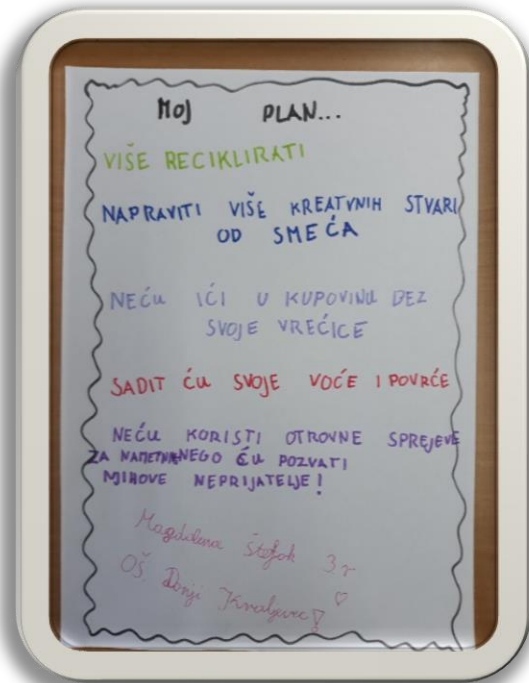 MOJ PLAN...
VIŠE RECIKLIRATI
NAPRAVITI VIŠE KREATVNIH STVARI
OD SMEĆA
NEĆU IĆI U KUPOVINU BEZ
SVOJE VREĆICE
SADIT ĆU SVOJE VOĆE I POVRĆE
NEĆU KORISTI OTROVNE SPREJEVE
ZA NEGO ĆU POZVATI
NJIHOVE NEPRIJATELJE!
Magdalena 3.r
OŠ Donji Kraljevec!